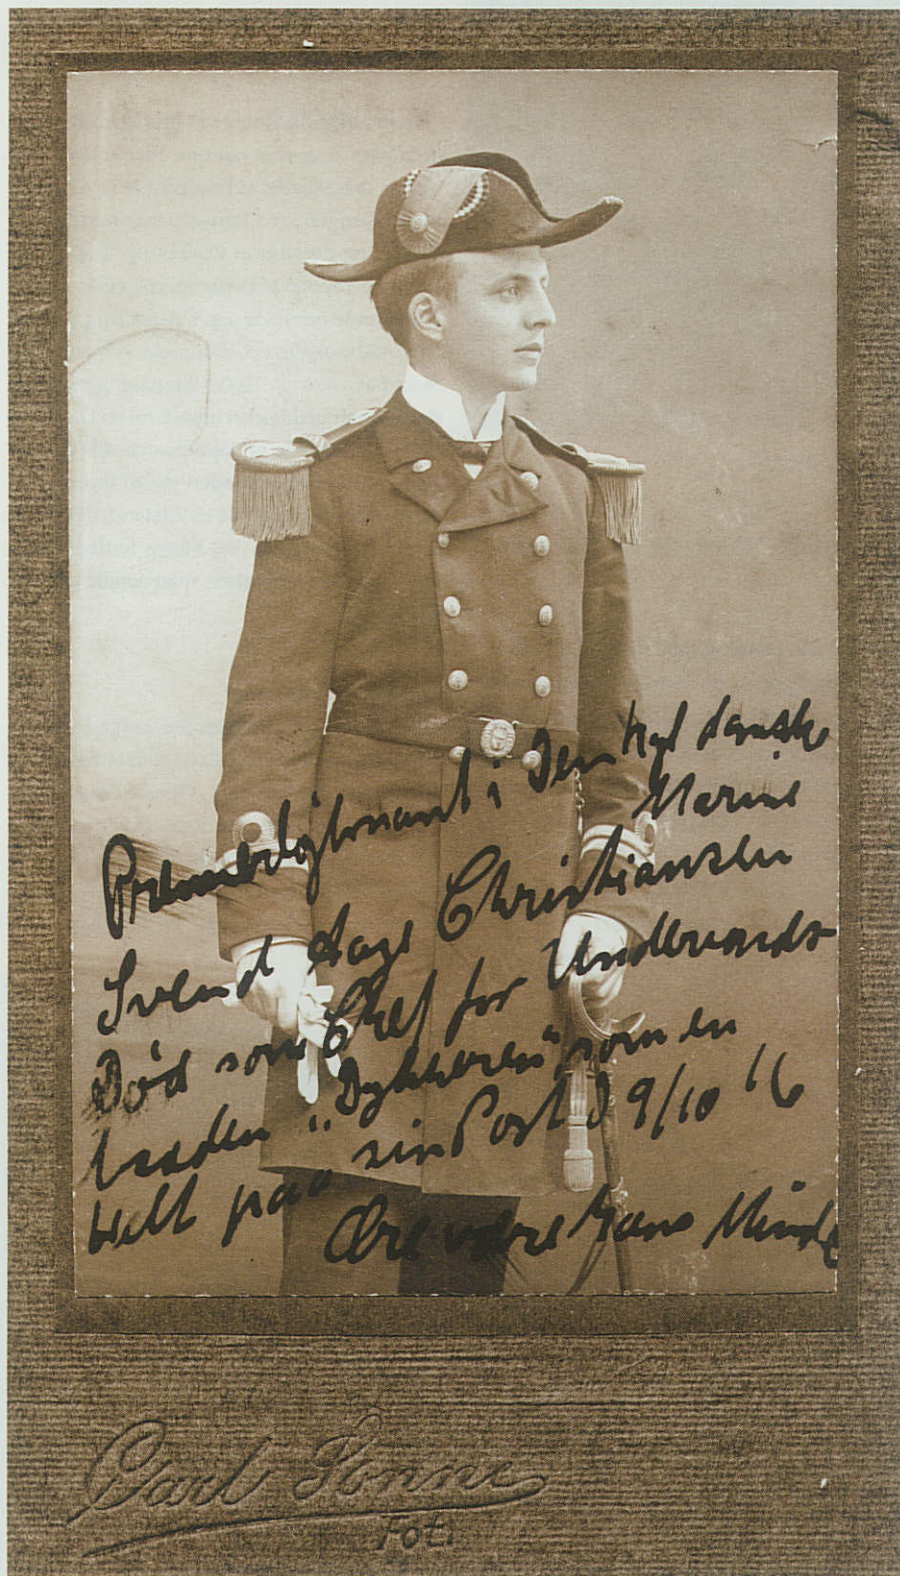 Premierløjtnant i Den kgl danske
Marine
Svend Aage Christiansen
Død som Chef for Undervands-
baaden „Dykkeren" som en
Helt paa sin Post d 9/10 16
Ære være hans Minde
Carl Sonne
Fot.